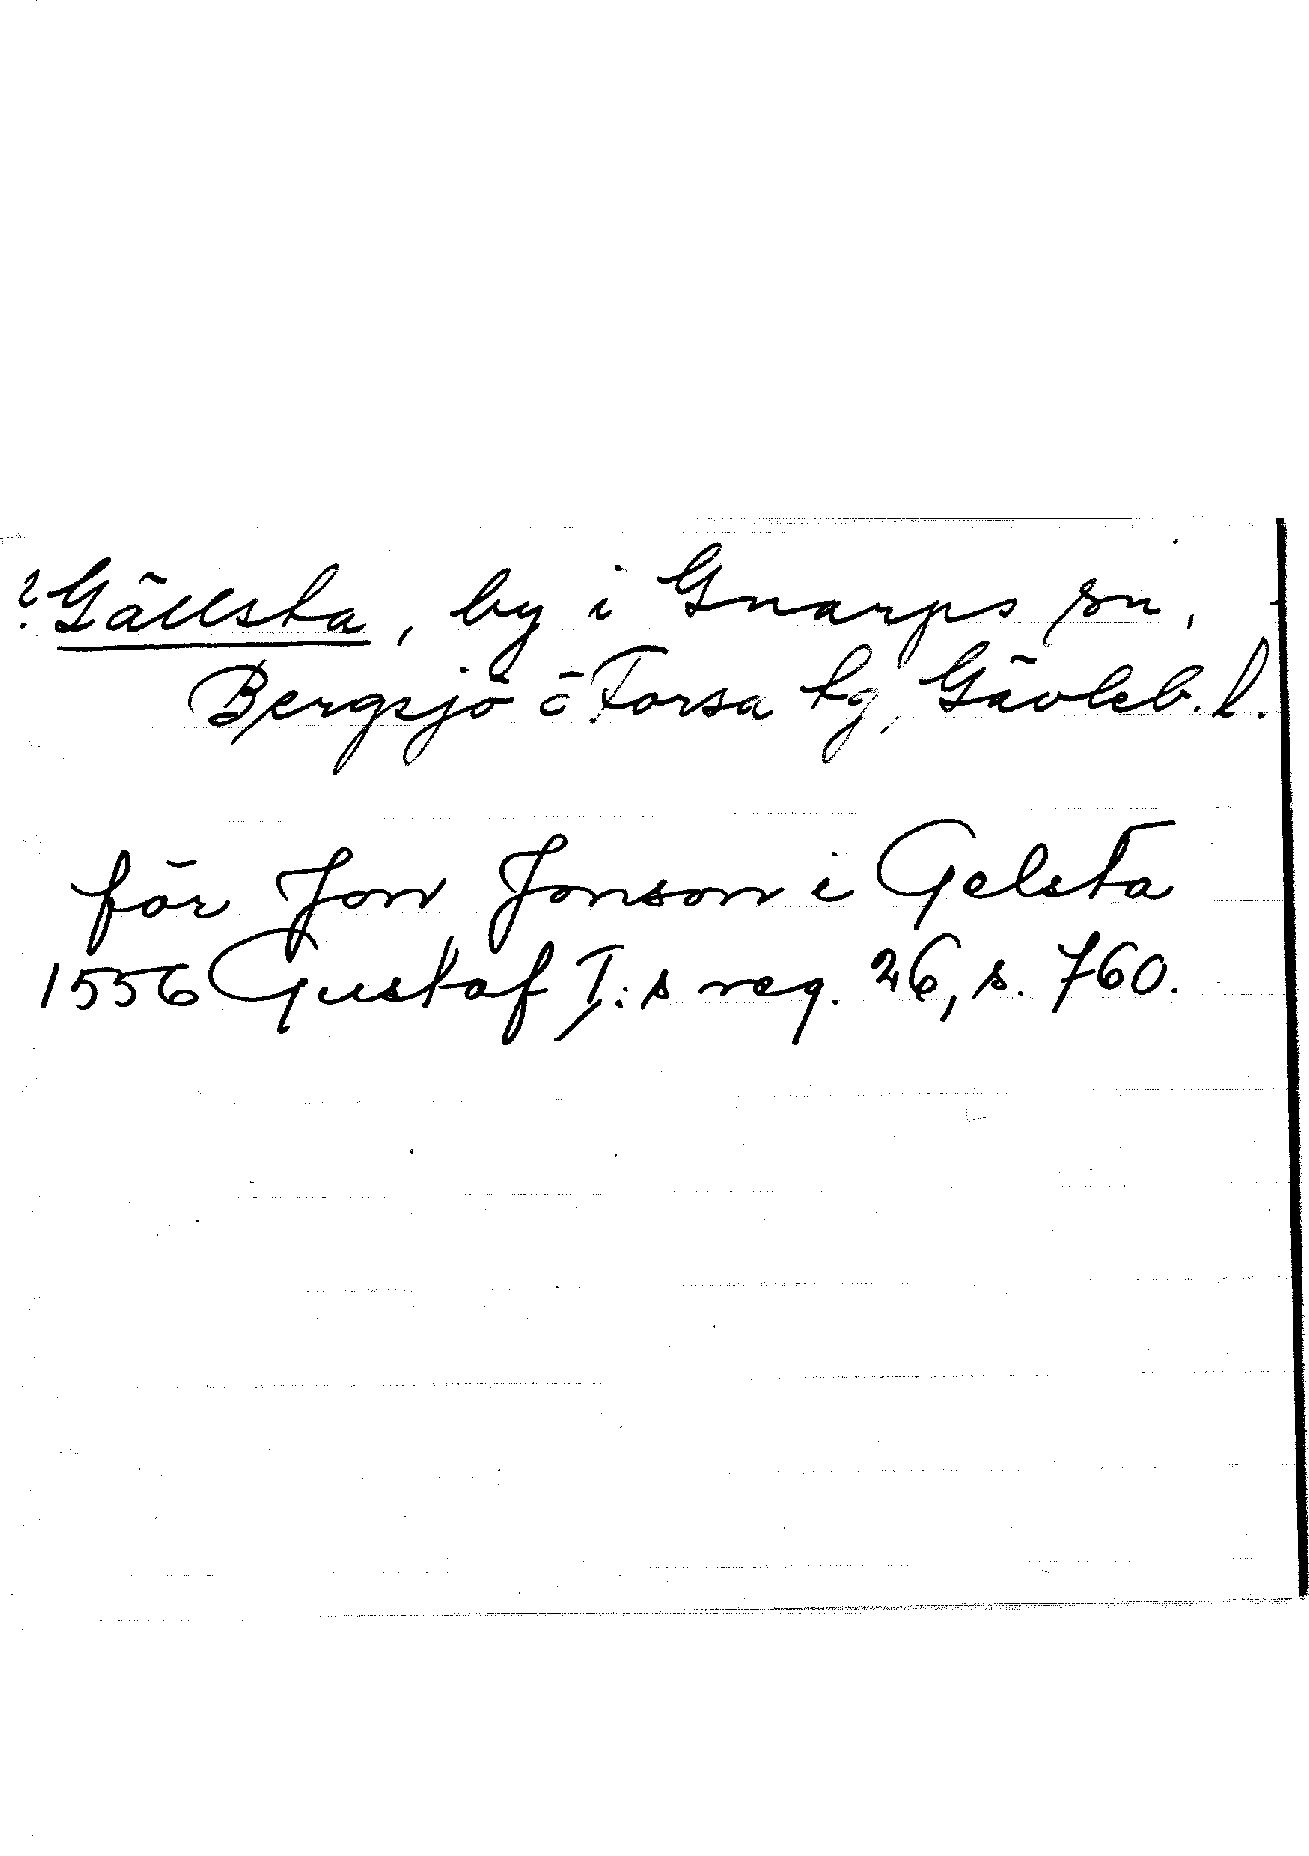 ? Gällsta, by i Gnarps sn,
Bergsjö o Forsa tg, Gävleb. l.
för Jon Jonson i Gelsta
1556 Gustaf I:s reg. 26, s. 760.